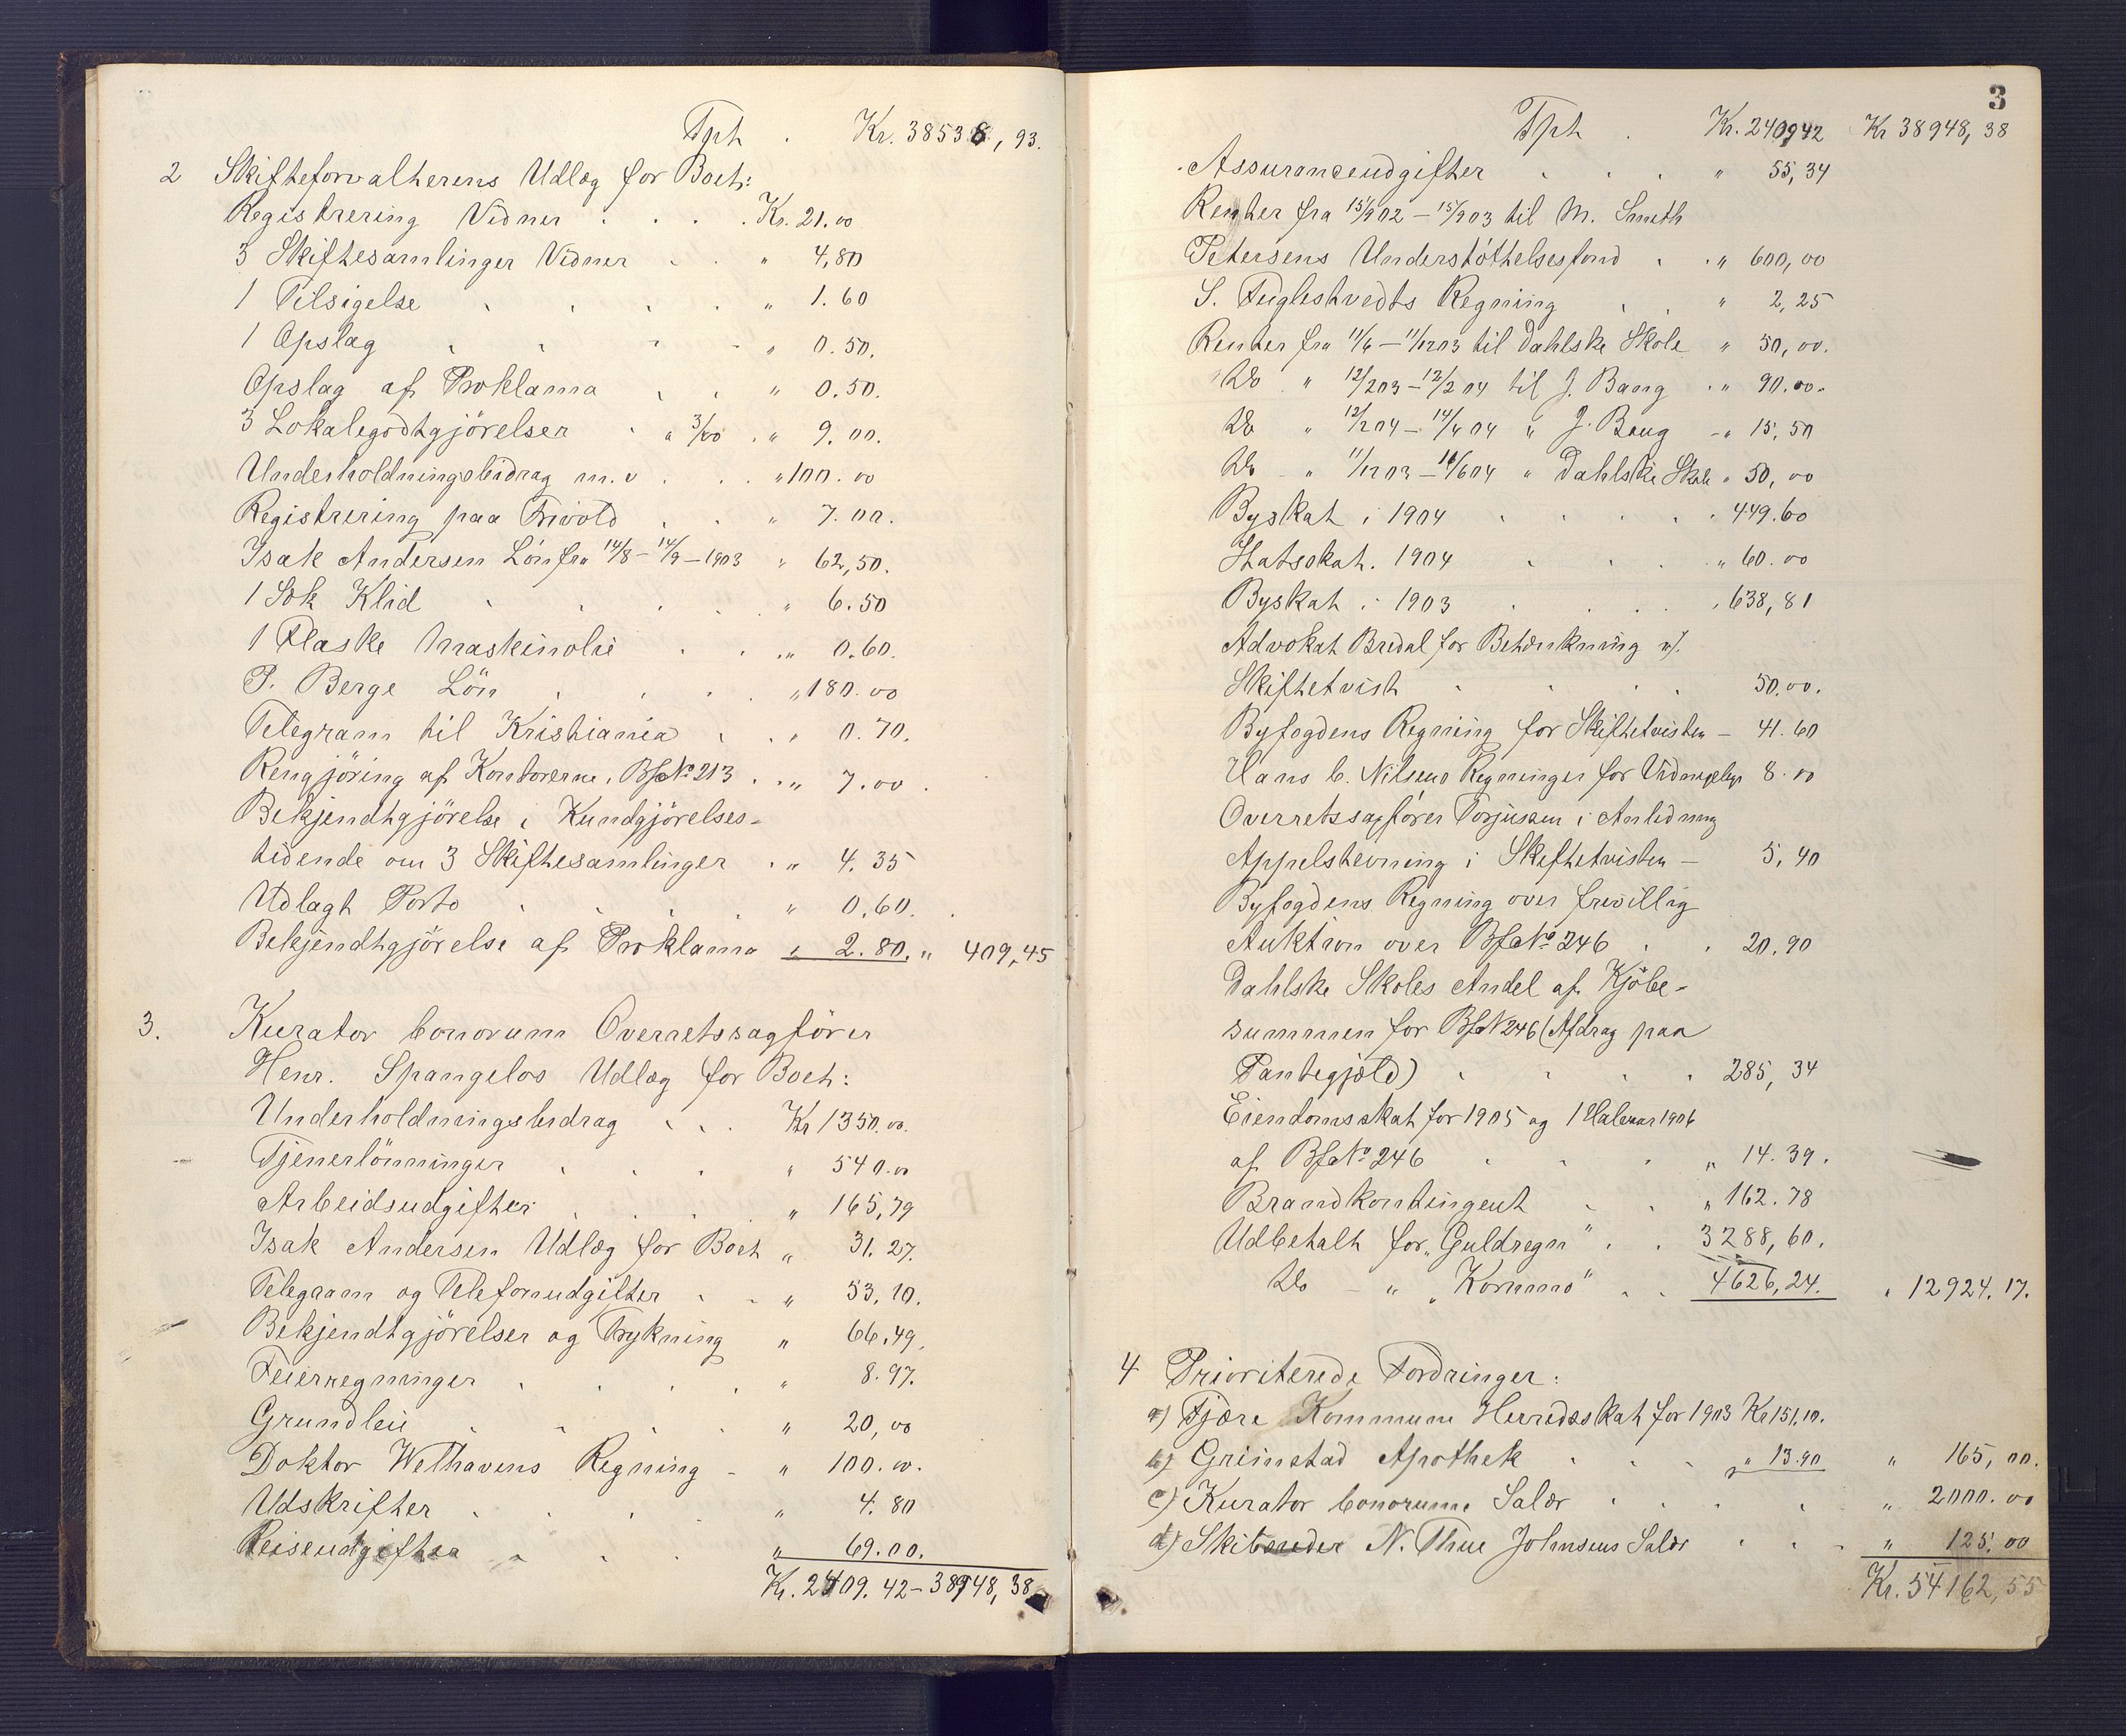 Tpt . Kr. 38538,93.
2 Skifteforvalterens Udlæg for Boet:
Registrering Vidner . . . . Kr. 21.00
3 Skiftesamlinger Vidner . . " 4,80
1 Tilsigelse . . . . " 1.60
1 Opslag . . . . " 0.50.
Opslag af Proklama . . " 0.50.
3 Lokalegodtgjörelser . a 3/00 . " 9.00.
Underholdningsbidrag m.v . . . " 100.00
Registrering paa Frivold . . " 7.00.
Isak Andersen Lön fra 14/8 – 14/9 – 1903 " 62,50.
1 Sæk Klid . . . . " 6.50
1 Flaske Maskinolie . . . " 0.60.
P. Berge Lön . . . . " 180.00
Telegram til Kristiania . . " 0.70.
Rengjöring af Kontorerne, Bf No 213 . . " 7.00 .
Bekjendtgjörelse i Kundgjörelses-
tidende om 3 Skiftesamlinger . " 4.35
Udlagt Porto . . . . " 0.60. .
Bekjendtgjörelse af Proklama " 2.80. " 409,45
3. Kurator bonorum Overretssagförer
Henr. Spangelos Udlæg for Boet:
Underholdningsbidrag . . . Kr 1350.00.
Tjenerlönninger . . . " 540.00
Arbeidsudgifter . . . " 165,79
Isak Andersen Udlæg for Boet " 31.27.
Telegram og Telefonudgifter . - " 53,10.
Bekjendtgjörelser og Trykning " 66,49.
Feierregninger . . . . " 8.97.
Grundleie . . . . " 20,00
Doktor Welhavens Regning - " 100.00.
Udskrifter . . . . " 4.80
Reiseudgifter . . . " 69.00.
Kr. 2409.42 – 38948,38
3
Tpt . Kr. 240942 Kr 38948,38
Assuranceudgifter . . . " 55,34
Renter fra 15/9 02 – 15/9 03 til M. Smith
Petersens Understöttelsesfond . . " 600,00
S. Fuglestvedts Regning . . " 2,25
Renter fra 11/6 – 11/12 03 til Dahlske Skole " 50,00.
Do " 12/2 03 – 12/2 04 til J. Bang . " 90.00.
Do " 12/2 04 – 14/4 04 " J. Bang - " 15,50
Do - " 11/12 03 – 11/6 04 " Dahlske Skole " 50,00
Byskat i 1904 . . . . . 449.60
Statsskat. 1904 . . . " 60.00
Byskat i 1903 . . . . . 638,81
Advokat Bredal for Betænkning v/.
Skiftetvist . . . . 50.00.
Byfogdens Regning for Skiftetvisten – 41.60
Hans C. Nilsens Regninger for 8.00
Overretssagförer Torjussen i Anledning
Appelstevning i Skiftetvisten – 5,40
Byfogdens Regning over frivillig
Auktion over Bf No 246 . . 20.90
Dahlske Skoles Andel af Kjöbe-
summen for Bf N 246 (Afdrag paa
Pantegjæld) . . . . 285,34
Eiendomsskat for 1905 og 1 Halvaar 1906
af Bf No 246 . . . " 14.39.
Brandkontingent . . " 162.78
Udbetalt for „Guldregn" . . 3288,60.
Do – " „Kornmo" . . 4626,24. " 12924.17.
4 Prioriterede Fordringer:
a) Fjære Kommune Herredsskat for 1903 Kr 151,10.
b) Grimstad Apothek . . . " 13.90 " 165,00.
c) Kurator bonorum Salær . . . . " 2000.00
d) N. Thue Johnsens Salær . . . " 125.00
Kr. 54162,55